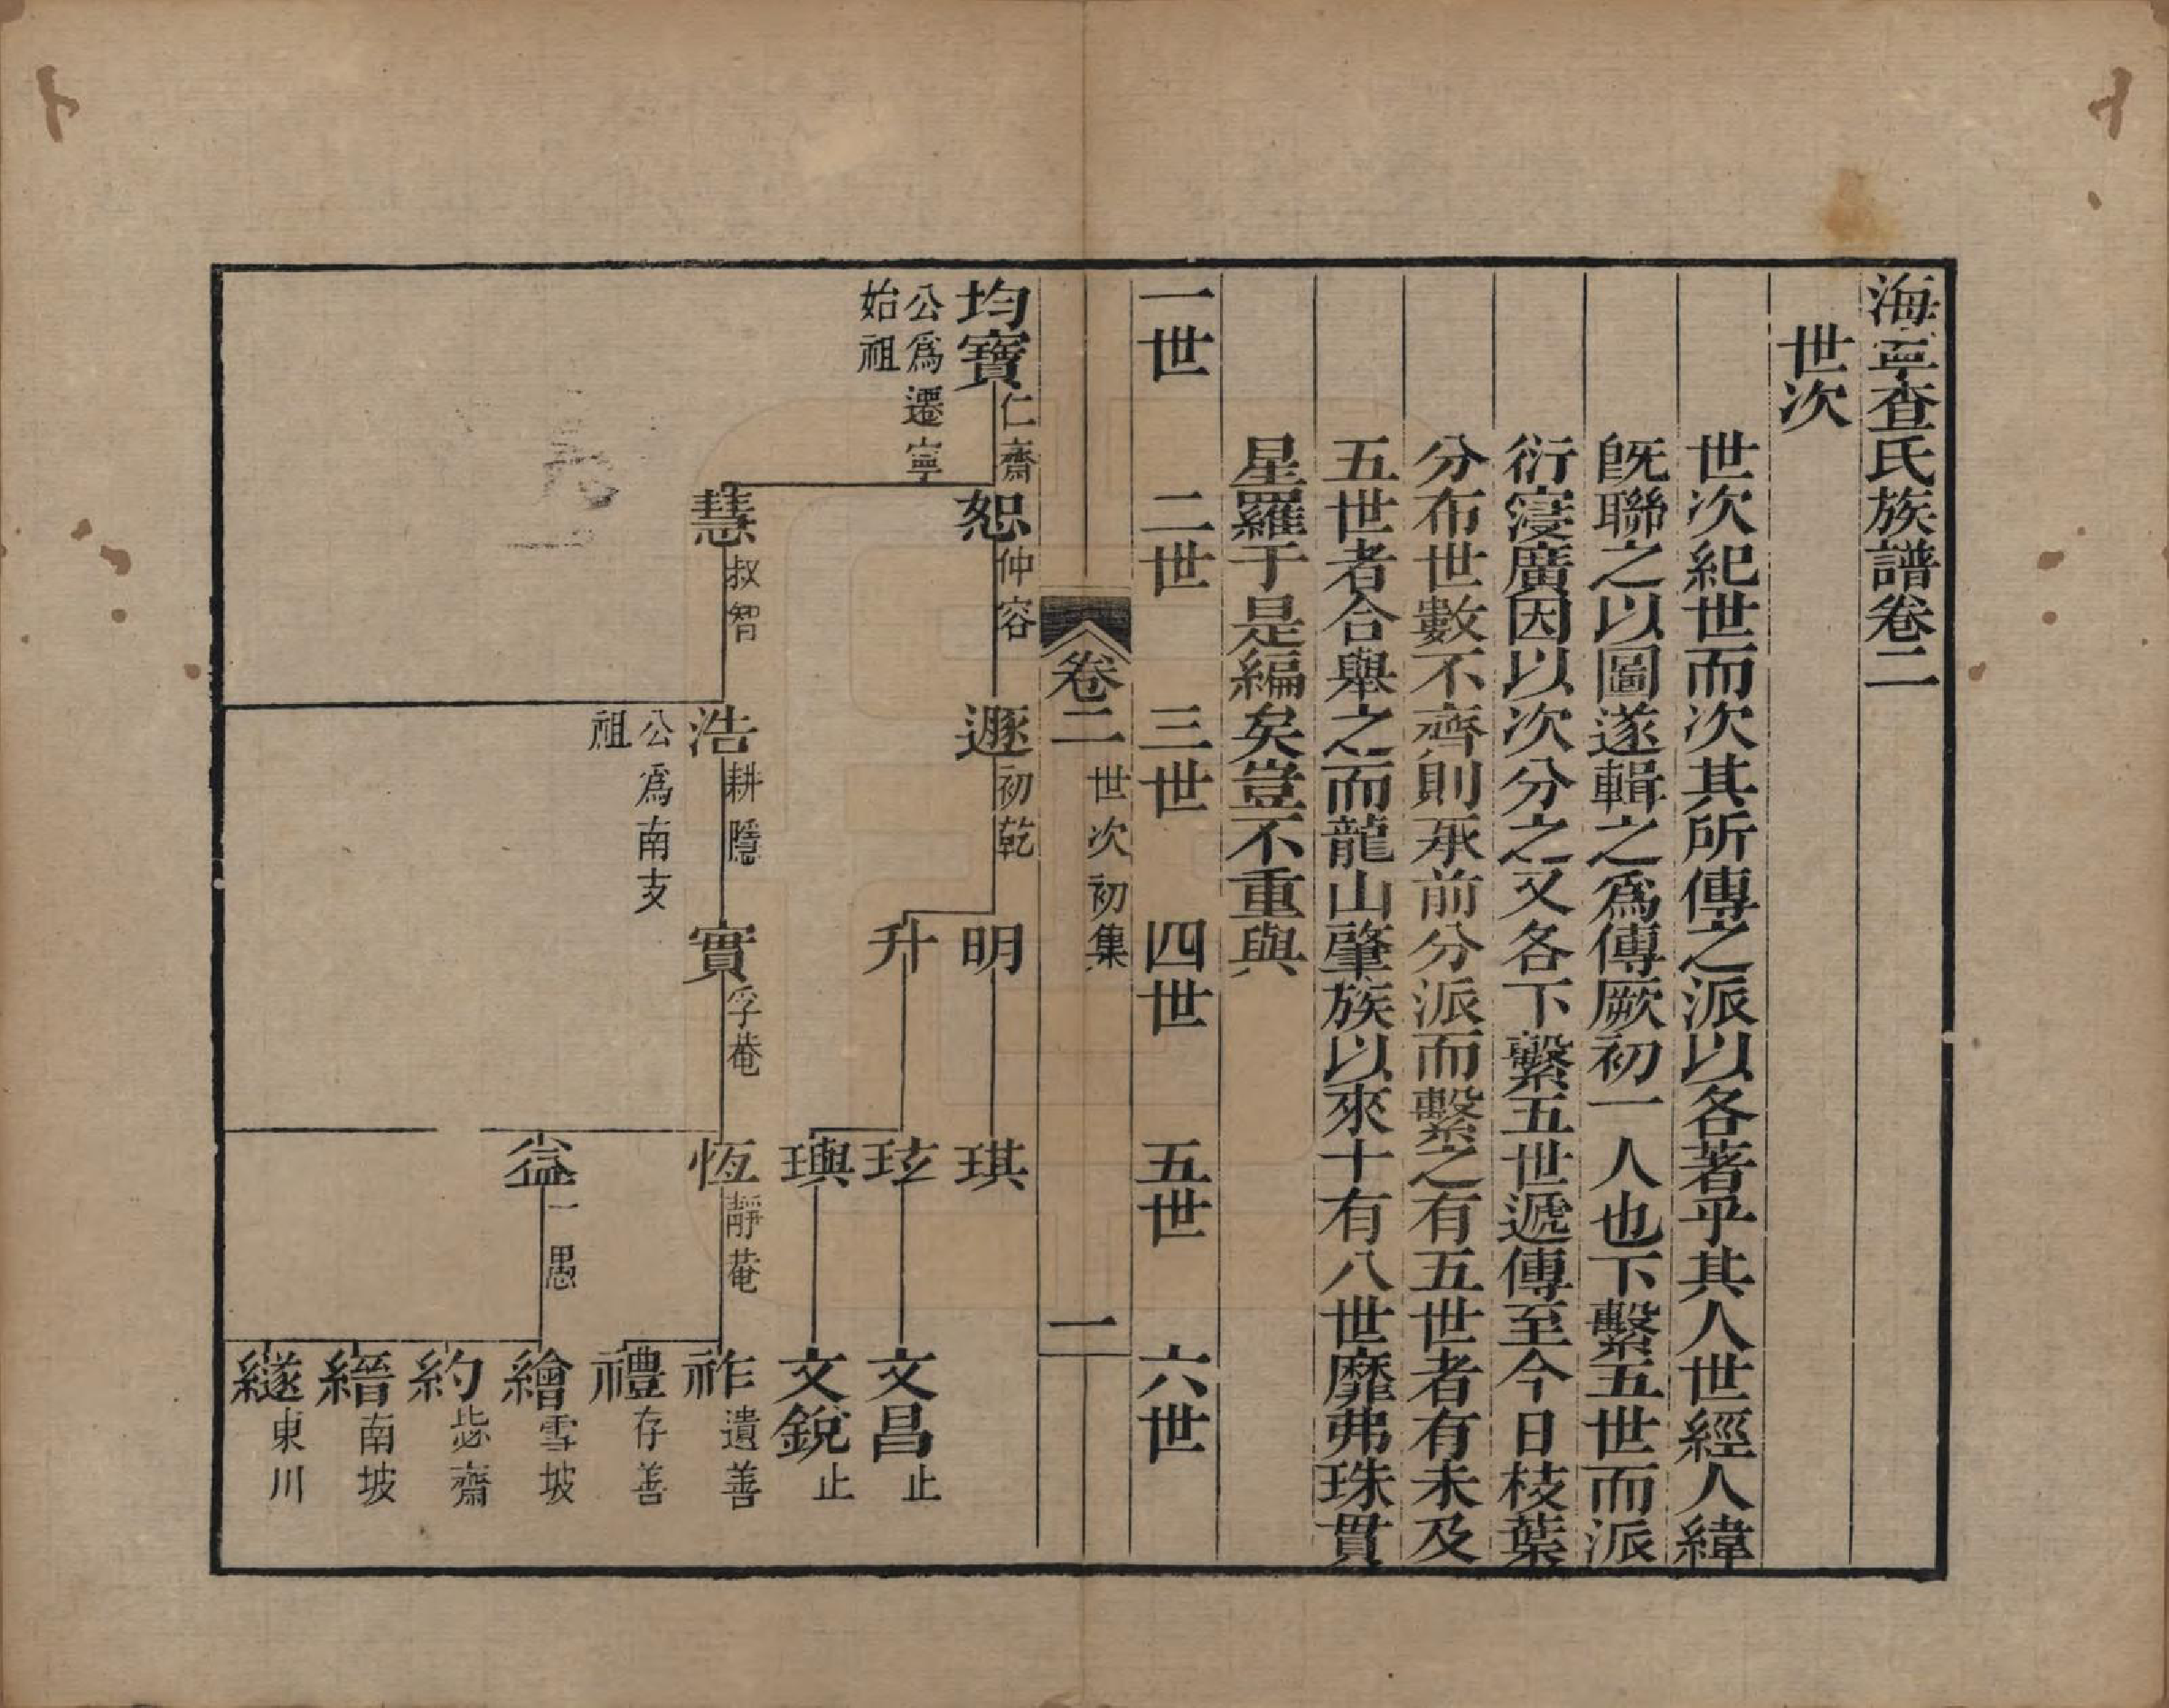 海寧查氏族譜卷二
世次
世次紀世而次其所傳之派以各著乎其人世經人緯
旣聯之以圖遂輯之爲傳厥初一人也下繫五世而派
衍寖廣因以次分之又各下繫五世遞傳至今日枝葉
分布世數不齊則承前分派而繫之有五世者有未及
五世者合舉之而龍山肇族以來十有八世靡弗珠貫
星羅于是編矣豈不重與
一世 二世 三世 四世 五世 六世
卷二 世次初集 一
均寶 仁齋 公爲遷寧始祖
恕 仲容
遯 初乾
明
琪
升
玹
文昌 止
璵
文銳 止
慧 叔智
浩 耕隱 公爲南支祖
實 孚菴
恆 靜菴
祚 遺善
禮 存善
益 一愚
繪 雪坡
約 毖齋
縉 南坡
繸 東川